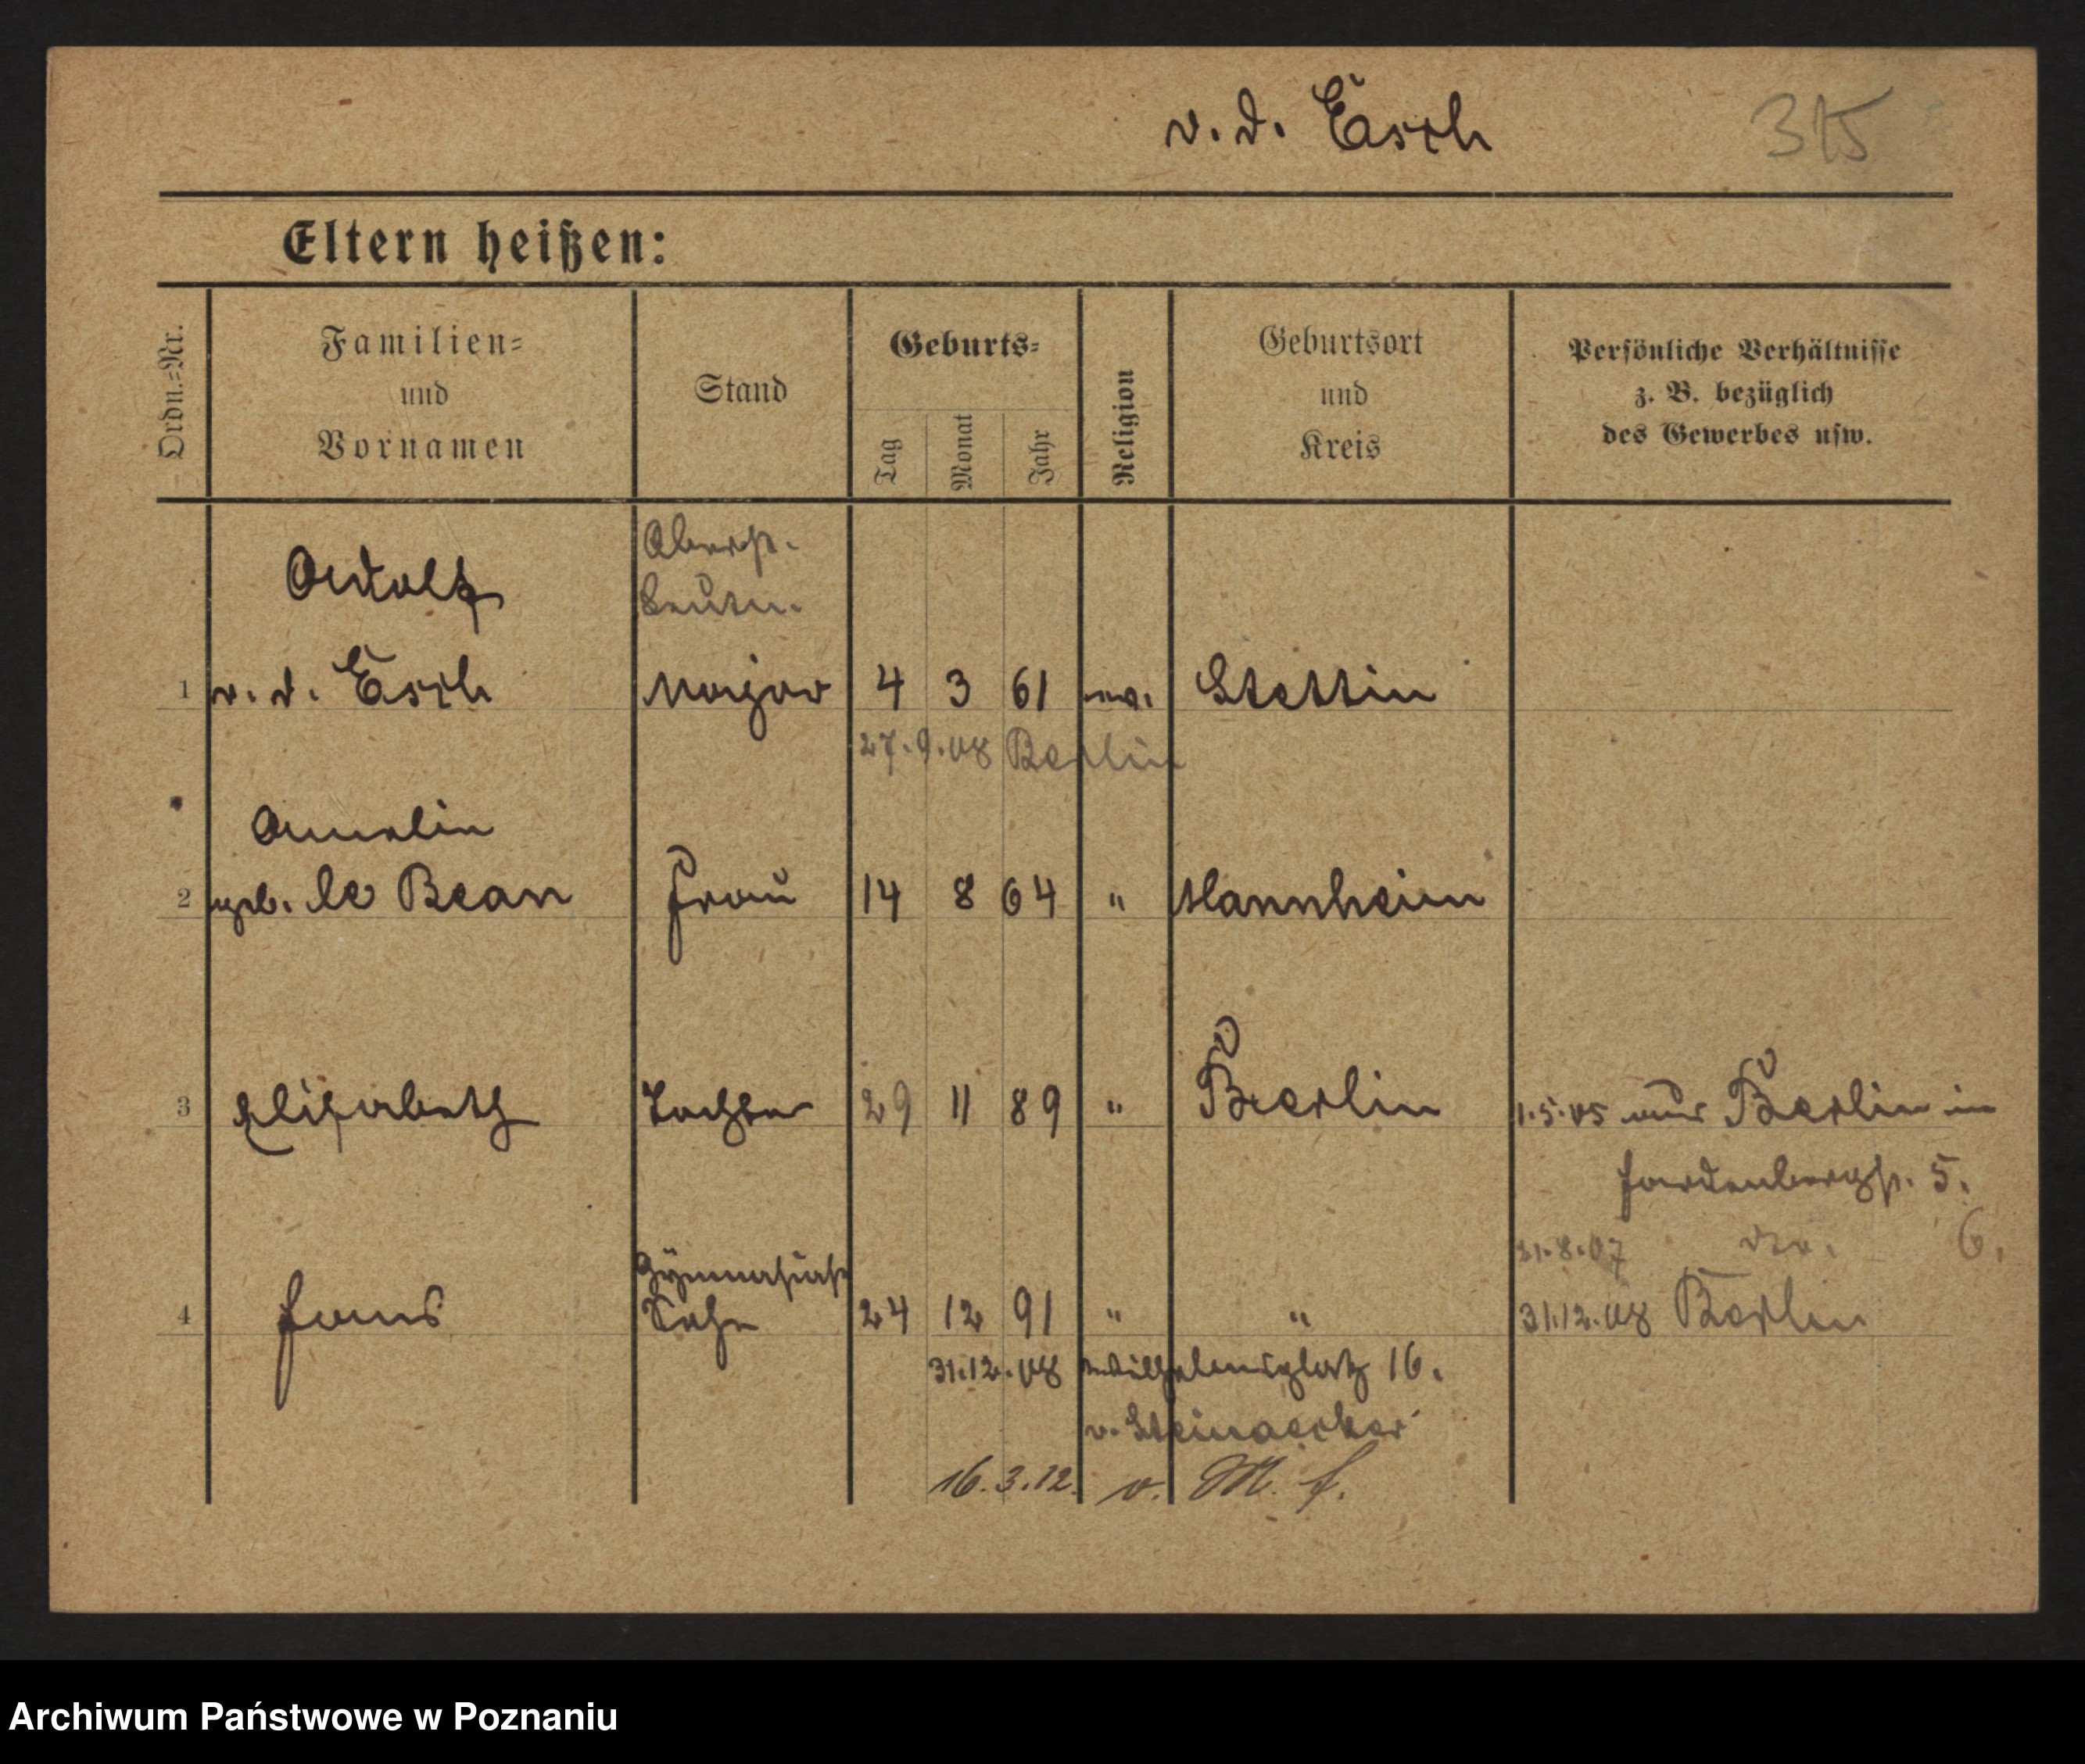 v. d. Esch 315
Eltern heißen:
Ordn.=Nr.
Familien=
und
Vornamen
Stand
Geburts=
Tag
Monat
Jahr
Religion
Geburtsort
und
Kreis
Persönliche Verhältnisse
z. B. bezüglich
des Gewerbes usw.
Oberst.
Leutn.
1 v. d. Esch Major 4 3 61 ev. Stettin
27.9.08 Berlin
Amelie
2 geb. le Bean Frau 14 8 64 " Mannheim
3 Elisabeth Tochter 29 11 89 " Berlin 1.5.05 aus Berlin in
Hardenbergst. 5.
31.8.07 6.
Gymnasiast
4 Hans Sohn 24 12 91 " " 31.12.08 Berlin
31.12.08 Wilhelmsplatz 16.
v. Steinaecker
16.3.12. v. M. f.
Archiwum Państwowe w Poznaniu